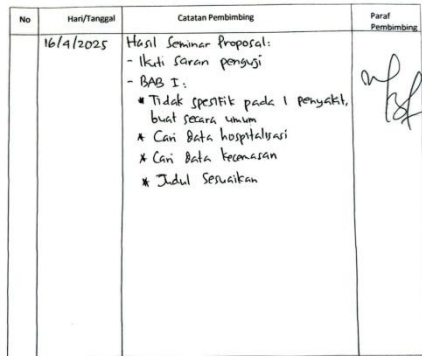 No Hari/Tanggal Catatan Pembimbing Paraf Pembimbing
16/4/2025 Hasil Seminar Proposal:
- Ikuti saran penguji
- BAB I:
* Tidak spesifik pada 1 penyakit,
buat secara umum
* Cari data hospitalisasi
* Cari data kecemasan
* Judul Sesuaikan